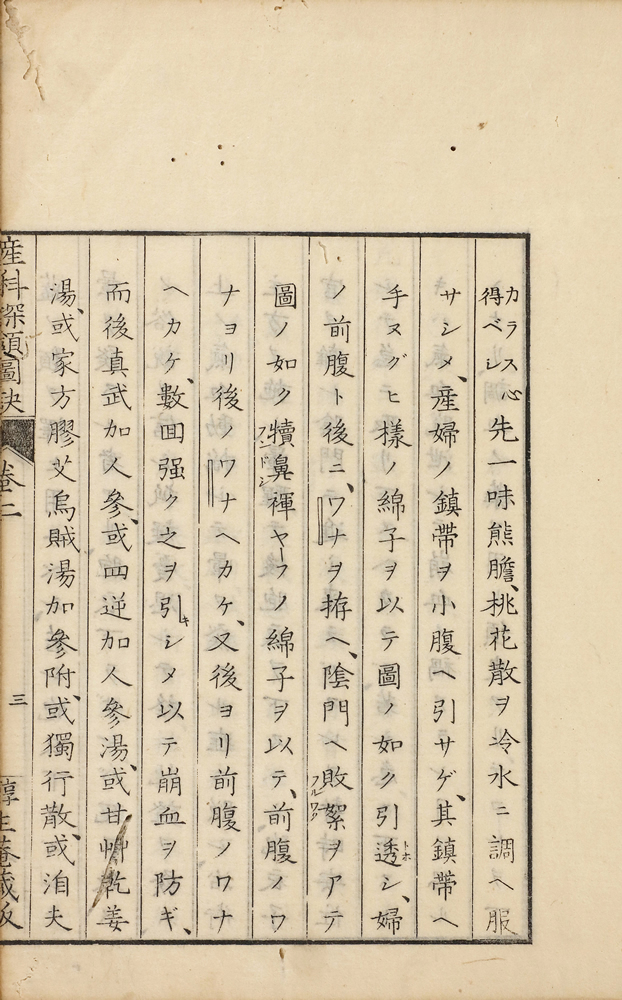 カラス心得ベシ先一味熊膽、桃花散ヲ冷水ニ調ヘ服
サシメ、産婦ノ鎮帯ヲ小腹ヘ引サゲ、其鎮帯ヘ
手ヌグヒ様ノ綿子ヲ以テ圖ノ如ク引透トホシ、婦
ノ前腹ト後ニ、ワナヲ拵ヘ、陰門ヘ敗絮フルワタヲアテ
圖ノ如ク犢鼻褌フンドシヤーフノ綿子ヲ以テ、前腹ノワ
ナヨリ後ノワナヘカケ、又後ヨリ前腹ノワナ
ヘカケ、數回强ク之ヲ引キシメ以テ崩血ヲ防ギ、
而後真武加人參、或四逆加人參湯、或甘艸乾姜
湯、或家方膠艾烏賊湯加參附、或獨行散、或洎夫
産科探頷圖訣 卷二 三 醇生菴藏板